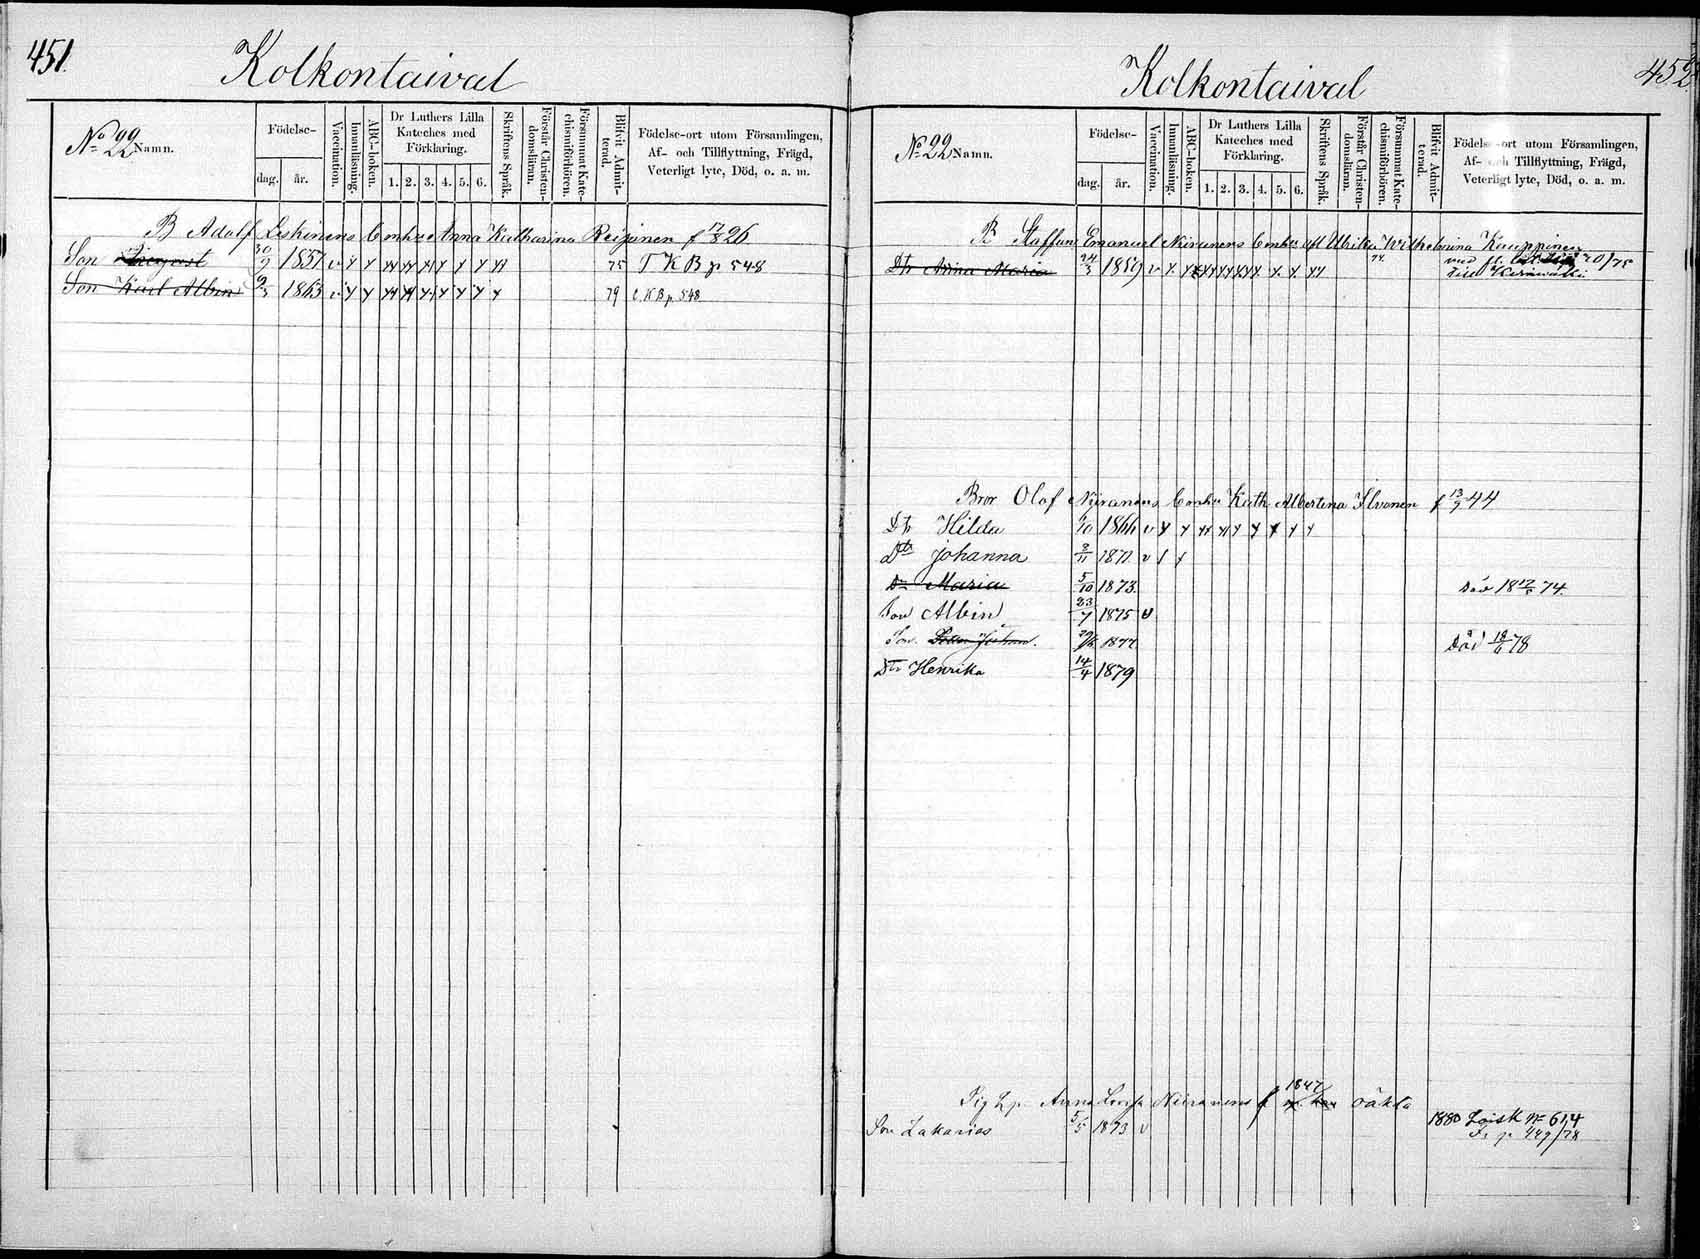 451.
Kolkontaival
No 22 Namn.
Födelse-
dag.
år.
Vaccination.
Innanläsning.
ABC-boken.
Dr Luthers Lilla
Kateches med
Förklaring.
1. 2. 3. 4. 5. 6.
Skriftens Språk.
Förstår Christen-
domsläran.
Försummat Kate-
chismiförhören.
Blifvit Admit-
terad.
Födelse-ort utom Församlingen,
Af- och Tillflyttning, Frägd,
Veterligt lyte, Död, o. a. m.
B Adolf Leskinens Enka Anna Katharina Reijonen f 17/8 26
Son 30/9 1857 v 75 T K B p 548
Son Karl Albin 2/3 1863 v 79 t. K B p. 548
452
Kolkontaival
No 22 Namn.
Födelse-
dag.
år.
Vaccination.
Innanläsning.
ABC-boken.
Dr Luthers Lilla
Kateches med
Förklaring.
1. 2. 3. 4. 5. 6.
Skriftens Språk.
Förstår Christen-
domsläran.
Försummat Kate-
chismiförhören.
Blifvit Admit-
terad.
Födelse-ort utom Församlingen,
Af- och Tillflyttning, Frägd,
Veterligt lyte, Död, o. a. m.
B Staffan Emanuel Niiranens Ulrika Wilhelmina Kauppinen
Dtr Anna Maria 24/3 1859 v 74.
Bror Olof Niiranens Kath Albertina Ilvonen f 13/7 44
Dtr Hilda 1866 v
Dtr Johanna 2/11 1871 v
Dr Maria 5/10 1873. Död 18 74.
Son Albin 23/7 1875 v
Son. Johan. 1877 Död 18/6 78
Dtr Henrika 14/4 1879
Pig Anna Lovisa Niiranens f 1847 oäkta
Son Zakarias 5/5 1873 v 1880 Loisk No 614
Fr. p. 449/78